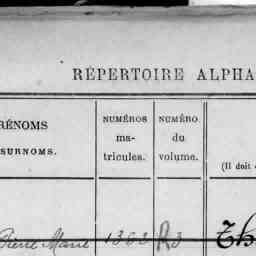 RÉPERTOIRE ALPHA
RÉNOMS
SURNOMS.
NUMÉROS
ma-
tricules.
NUMÉRO
du
volume.
(Il doit
Pierre Marie 1362 R3 Th